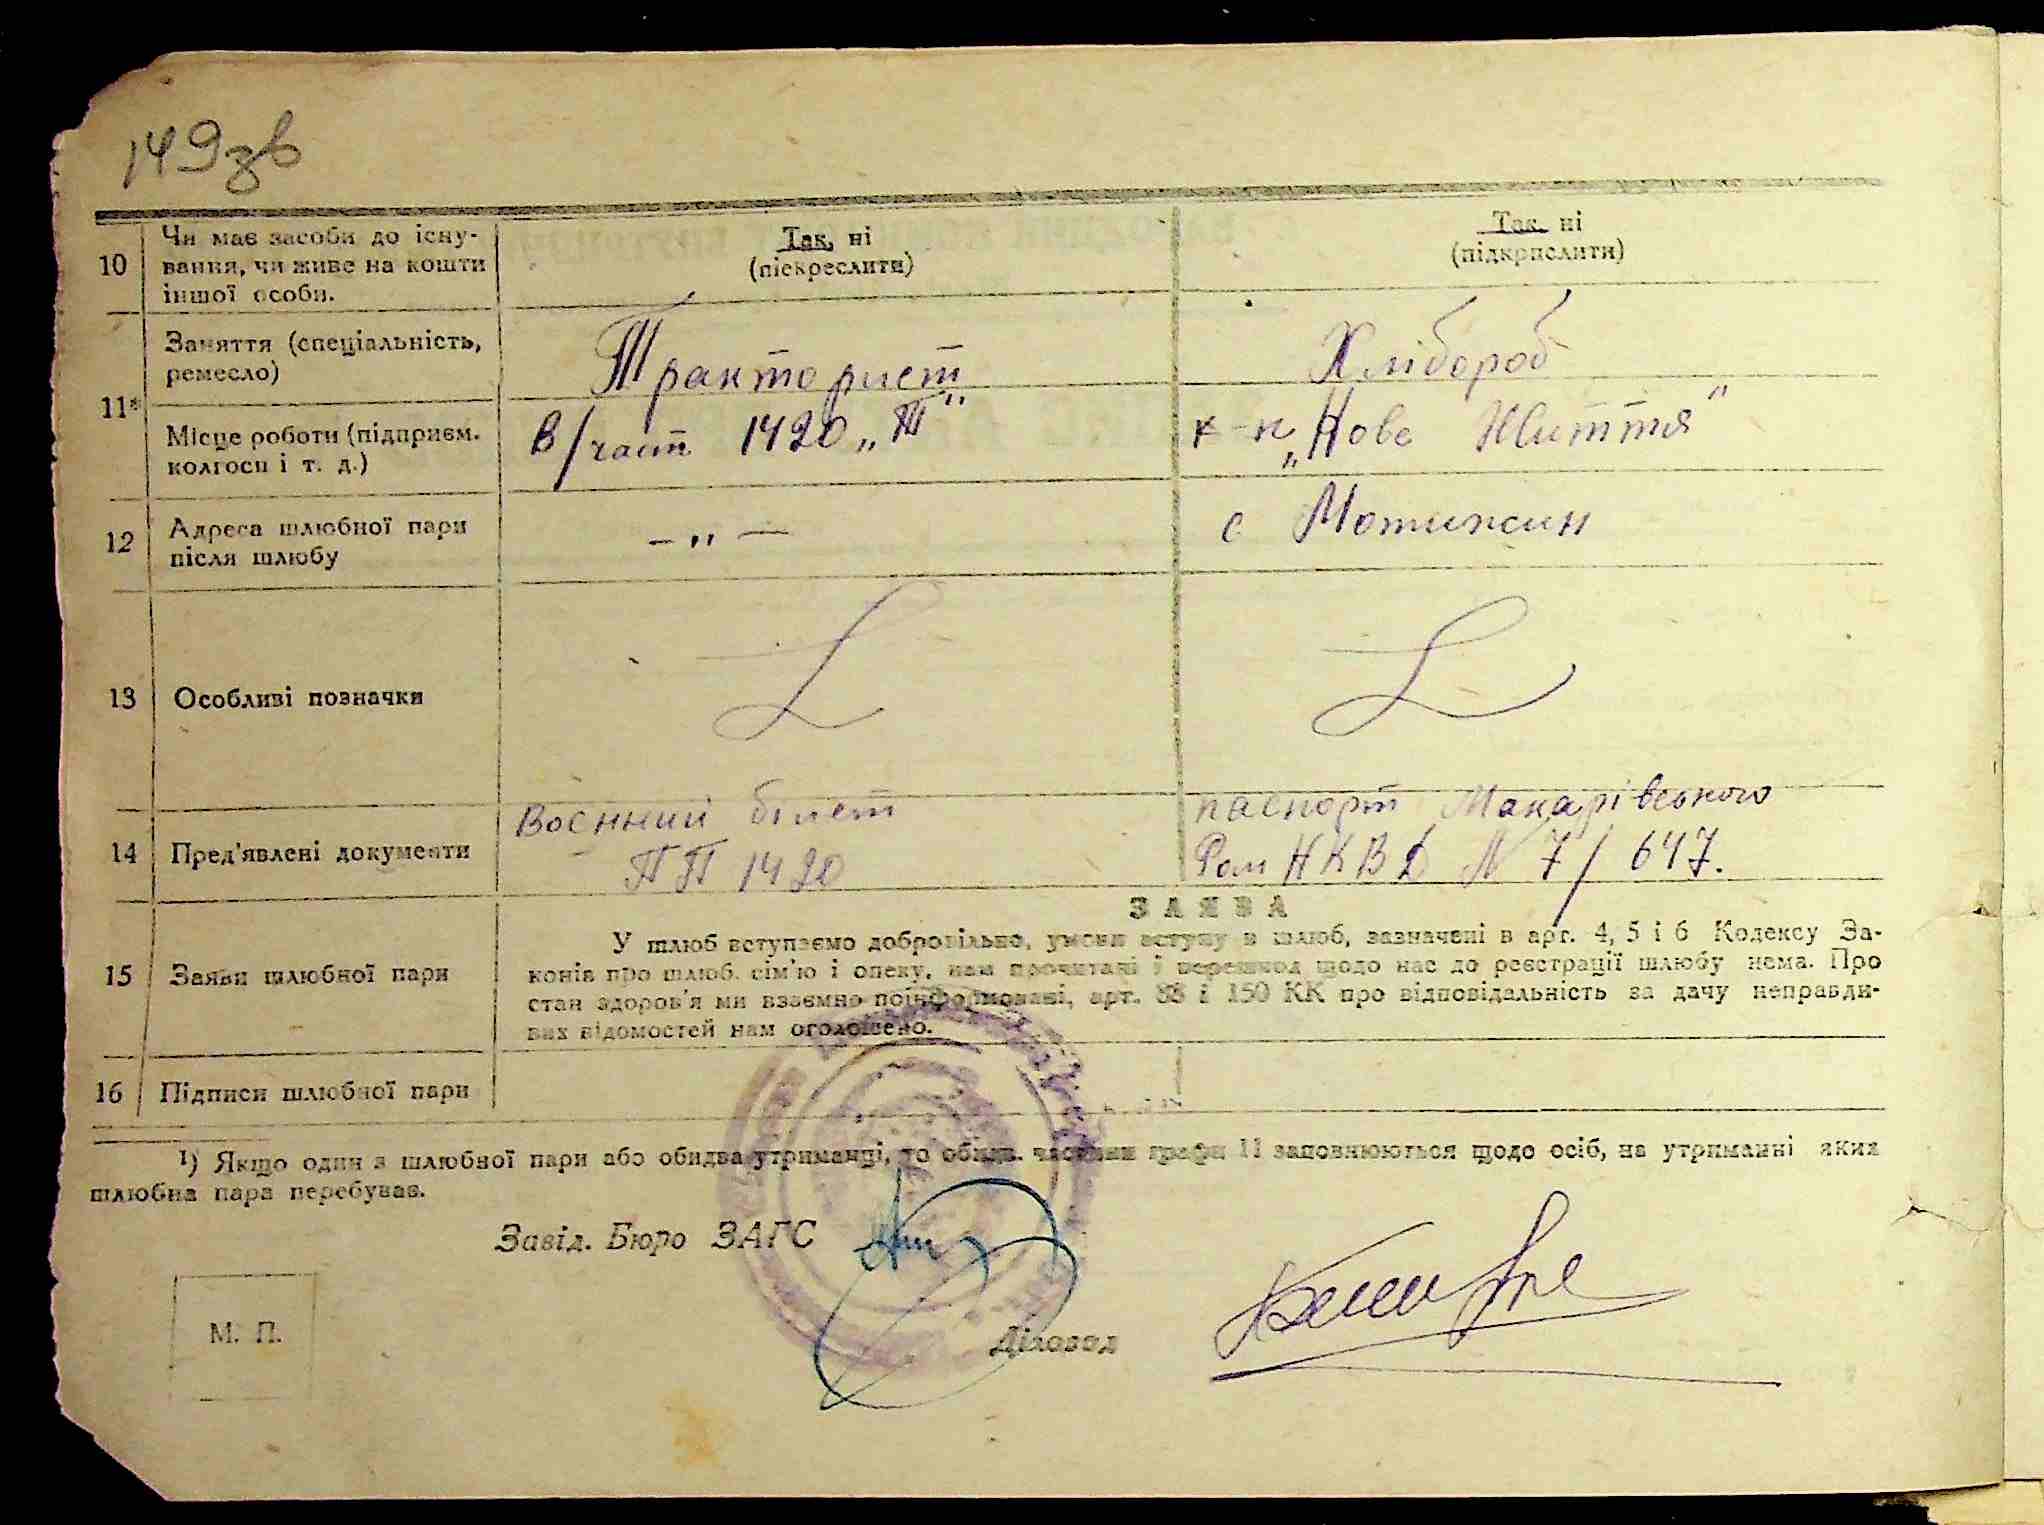 149зв
10 Чи має засоби до існу-
вання, чи живе на кошти
іншої особи.
Так, ні
(піскреслити)
Так, ні
(підкрислити)
11*
Заняття (спеціальність,
ремесло)
Тракторист
Хлібороб
Місце роботи (підприєм.
колгосп і т. д.)
В/част 1420 „Т"
к-п „Нове Життя"
12 Адреса шлюбної пари
після шлюбу
— „ —
с Мотижин
13 Особливі позначки
14 Пред'явлені документи
Воєнний білет
ПП 1420
паспорт Макарівського
НКВД N 7/647.
15 Заяви шлюбної пари
ЗАЯВА
У шлюб вступаємо добровільно, умови вступу в шлюб, зазначені в арт. 4, 5 і 6 Кодексу За-
конів про шлюб, сім'ю і опеку, нам прочитані і перешкод щодо нас до реєстрації шлюбу нема. Про
стан здоров'я ми взаємно поінформовані, арт. 88 і 150 КК про відповідальність за дачу неправди-
вих відомостей нам оголошено.
16 Підписи шлюбної пари
¹) Якщо один з шлюбної пари або обидва утриманці, то обидв. частини графи 11 заповнюються щодо осіб, на утриманні яких
шлюбна пара перебуває.
Завід. Бюро ЗАГС
М. П.
Діловод